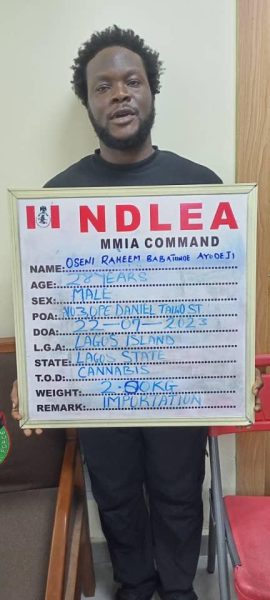 NDLEA
MMIA COMMAND
NAME: OSENI RAHEEM BABATUNDE AYODEJI
AGE: 28 YEARS
SEX: MALE
POA: NO3, OPE DANIEL TAIWO ST
DOA: 22-07-2023
L.G.A: LAGOS ISLAND
STATE: LAGOS STATE
T.O.D: CANNABIS
WEIGHT: 2.60KG
REMARK: IMPORTATION
FORCE